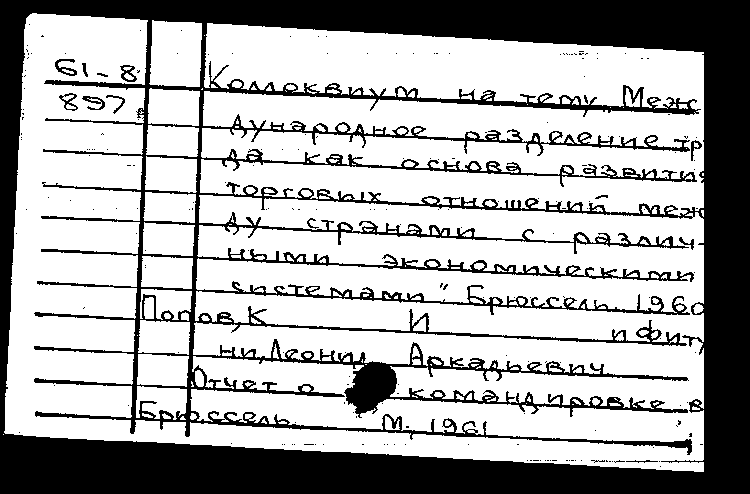 61-8 Коллоквиум на тему „Меж
897
дународное разделение тру
да как основа развития
торговых отношений меж
ду странами с различ-
ными экономическими
системами". Брюссель. 1960
Попов, К И и Фиту
ни, Леонид Аркадьевич
Отчет о командировке в
Брюссель. М., 1961